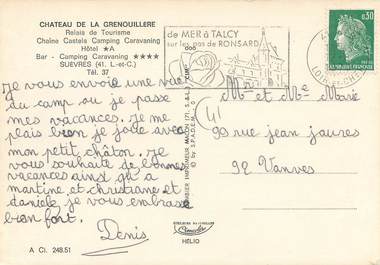 CHATEAU DE LA GRENOUILLERE
Relais de Tourisme
Chaîne Castels Camping Caravaning
Hôtel ★A
Bar - Camping Caravaning ★★★★
SUEVRES (41. L.-et-C.)
Tél. 37
Je vous envoie une vue
du camp ou je passe
mes vacances. Je me
plais bien je joue avec
mon petit châton. Je
vous souhaite de bonnes
vacances ainsi qu'a
martine et christiane et
daniele je vous embrasse
bien fort.
Denis
A Cl. 248.51
de MER à TALCY
sur les pas de RONSARD
0,30
REPUBLIQUE FRANÇAISE
LOIR-ET-CHER
41
Mr et Me Marié
98 rue jean jaures
92 Vanves
COMBIER IMPRIMEUR MACON (71. S.-&-L.)
© by S.P.A.D.E.M.
HELIO